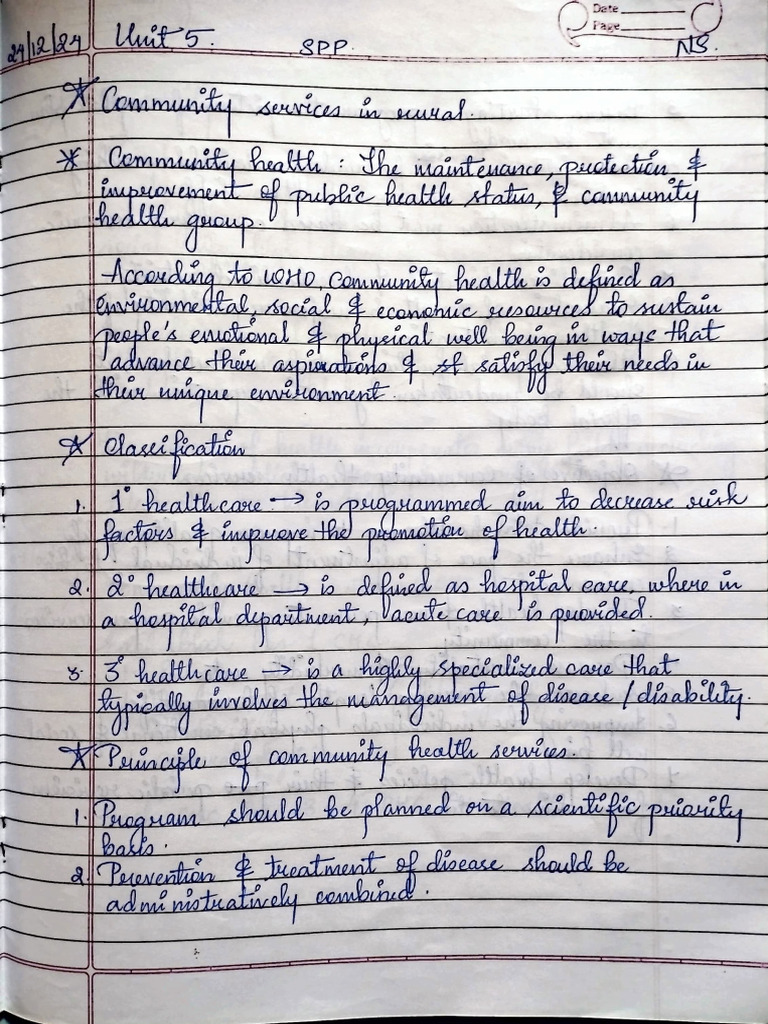 Date
Page
24/12/24 Unit 5. SPP. NS.
* Community services in rural.
* Community health : The maintenance, protection &
improvement of public health status, & community
health group.
According to WHO, community health is defined as
environmental, social & economic resources to sustain
people's emotional & physical well being in ways that
advance their aspirations & satisfy their needs in
their unique environment
* Classification
1. 1° healthcare → is programmed aim to decrease risk
factors & improve the promotion of health.
2. 2° healthcare → is defined as hospital care, where in
a hospital department, acute care is provided.
3. 3° healthcare → is a highly specialized care that
typically involves the management of disease / disability.
* Principle of community health services.
1. Program should be planned on a scientific priority
basis.
2. Prevention & treatment of disease should be
administratively combined.